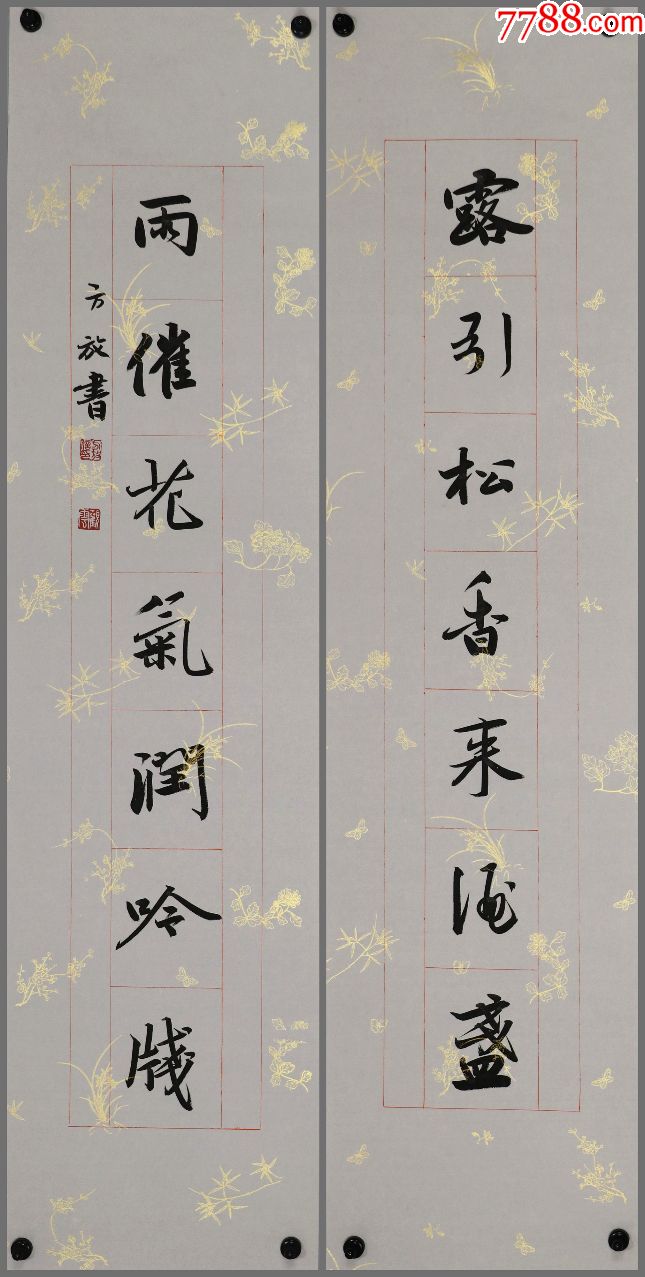 7788.com
露引松香来酒盏
雨催花氣潤吟牋
方放書